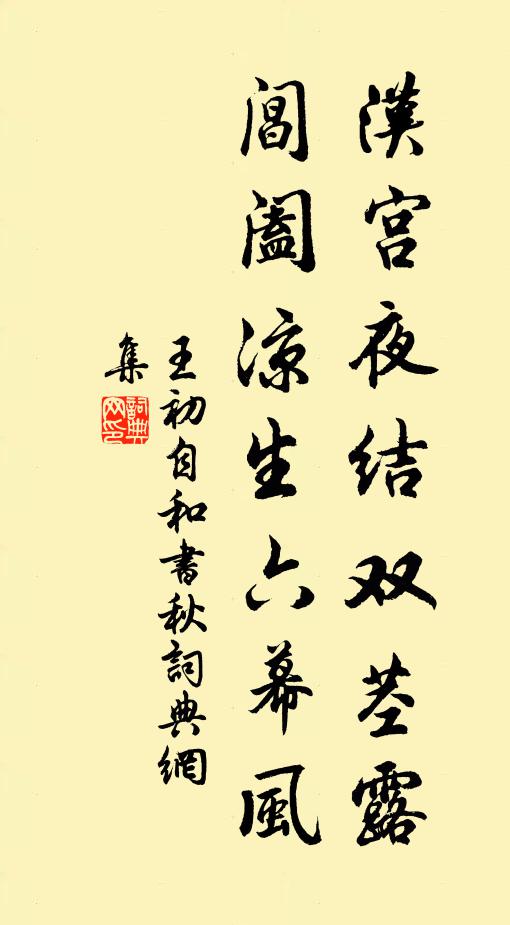 漢宫夜结双茎露
閶阖凉生六幕風
王初自和書秋詞典網
集
詞典
网印